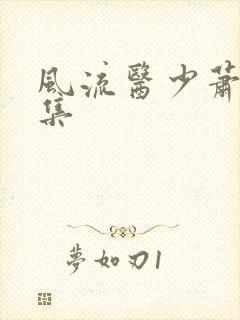 風流醫少蕭
集
夢如刃1